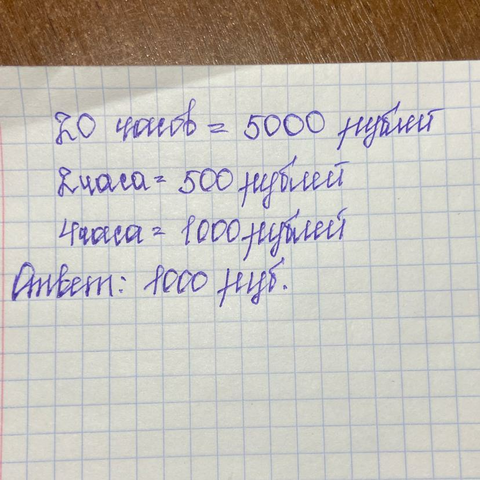 20 часов = 5000 рублей
2 часа = 500 рублей
4 часа = 1000 рублей
Ответ: 1000 руб.